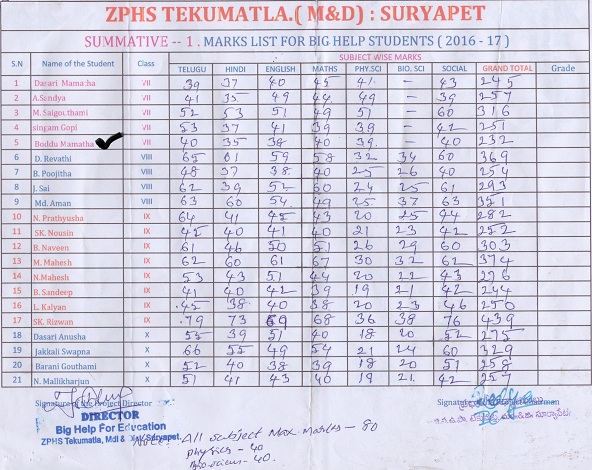 ZPHS TEKUMATLA.( M&D) : SURYAPET
SUMMATIVE -- 1 . MARKS LIST FOR BIG HELP STUDENTS ( 2016 - 17 )
S.N Name of the Student Class SUBJECT WISE MARKS
TELUGU HINDI ENGLISH MATHS PHY.SCI BIO. SCI SOCIAL GRAND TOTAL Grade
1 Dasari Mamatha VII 39 37 40 45 41 - 43 245
2 A.Sandya VII 41 35 49 44 49 - 39 257
3 M. Saigouthami VII 52 53 51 49 51 - 60 316
4 singam Gopi VII 53 37 41 39 39 - 42 251
5 Boddu Mamatha VII 40 35 38 40 39 - 40 232
6 D. Revathi VIII 65 61 59 58 32 34 60 369
7 B. Poojitha VIII 48 37 38 40 25 26 40 254
8 J. Sai VIII 62 39 52 60 24 25 61 293
9 Md. Aman VIII 63 60 54 49 25 37 63 351
10 N. Prathyusha IX 64 41 45 43 20 25 44 282
11 SK. Nousin IX 45 40 41 40 21 23 42 252
12 B. Naveen IX 61 46 50 51 26 29 60 303
13 M. Mahesh IX 62 60 61 67 30 32 62 374
14 N.Mahesh IX 53 43 51 44 20 22 43 276
15 B. Sandeep IX 41 40 42 39 19 21 42 244
16 L. Kalyan IX 45 38 40 38 20 23 46 250
17 SK. Rizwan IX 79 73 69 68 36 38 76 439
18 Dasari Anusha X 55 39 51 40 18 20 52 275
19 Jakkali Swapna X 66 55 49 54 21 24 60 329
20 Barani Gouthami X 52 40 38 39 18 20 51 258
21 N. Mallikharjun X 51 41 43 40 19 21 42 257
Signature of the Project Director
DIRECTOR
Big Help For Education
ZPHS Tekumatla, Mdl & Suryapet.
Note: All subject Max. Marks - 80
physics - 40
Bioscience - 40.